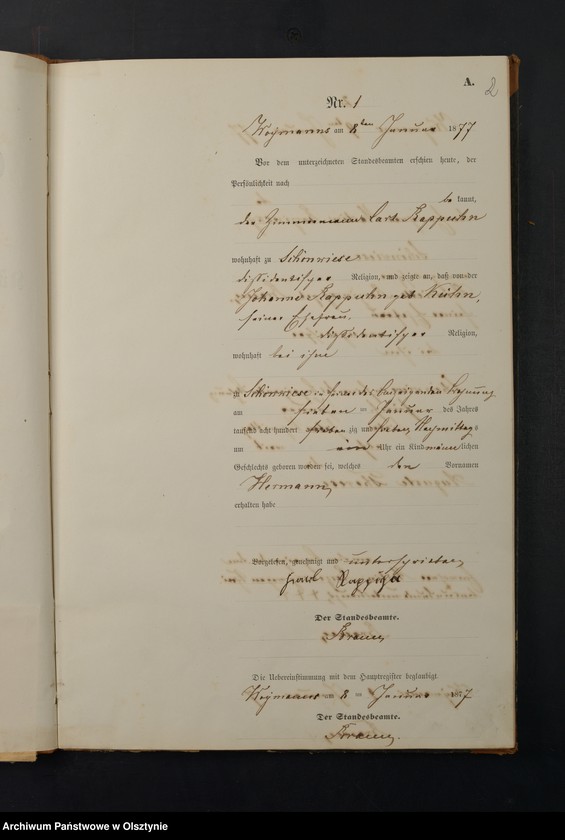 A.
2
Nr. 1
am 8ten Januar 1877
Vor dem unterzeichneten Standesbeamten erschien heute, der
Persönlichkeit nach
be kannt,
der Zimmermann Carl
wohnhaft zu Schönwiese
dissidentischer Religion, und zeigte an, daß von der
geb. Kuhn,
seiner Ehefrau,
dissidentischer Religion,
wohnhaft bei ihm
zu Schönwiese in Wohnung
am sieben = Januar des Jahres
tausend acht hundert sieben zig und sieben Nachmittags
um ein Uhr ein Kind männlichen
Geschlechts geboren worden sei, welches den Vornamen
Hermann
erhalten habe
Vorgelesen, genehmigt und unterschrieben
Der Standesbeamte.
Die Uebereinstimmung mit dem Hauptregister beglaubigt
am 8 = Januar 1877
Der Standesbeamte.
Archiwum Państwowe w Olsztynie